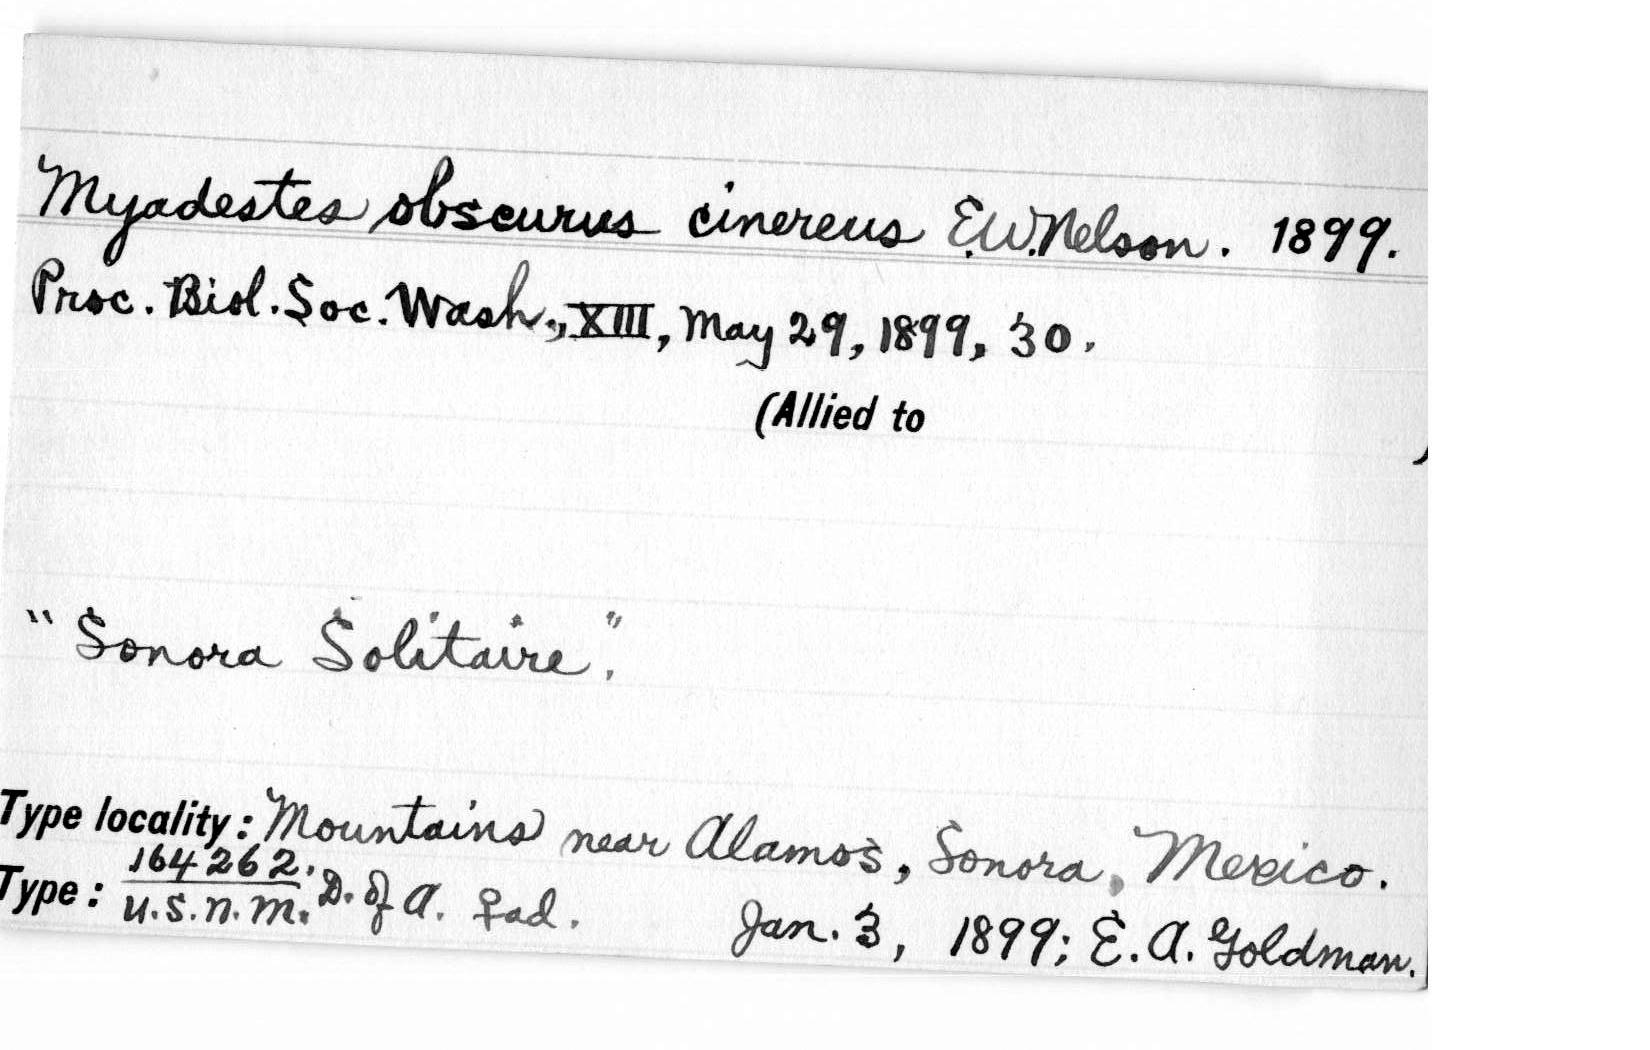 Myadestes obscurus cinereus E.W.Nelson. 1899.
Proc. Biol. Soc. Wash., XIII, May 29, 1899, 30.
(Allied to )
"Sonora Solitaire".
Type locality: Mountains near Alamos, Sonora, Mexico.
Type: 164262. U.S.N.M. D. of A. ♀ad. Jan. 3, 1899; E. A. Goldman.